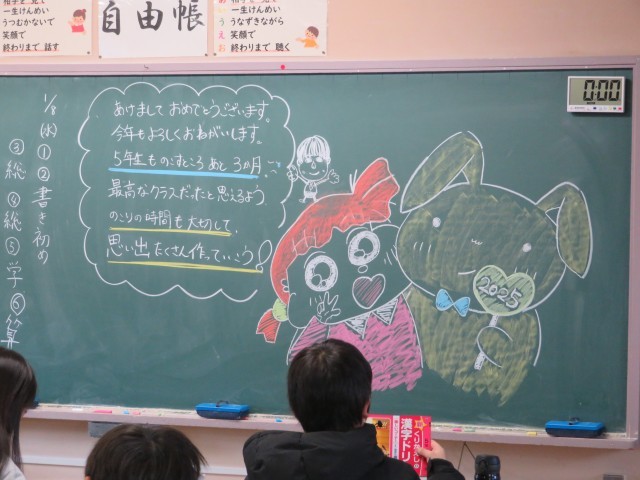 相手を見て
一生けんめい
うつむかないで
笑顔で
終わりまで 話す
自由帳
あ
い
う
え
お
相手を見て
一生けんめい
うなずきながら
笑顔で
終わりまで 聴く
0:00
1/8
(水)
①
② 書き初め
③ 総
④ 総
⑤ 学
⑥ 算
あけまして おめでとうございます。
今年もよろしくおねがいします。
5年生ものこすところ あと 3か月…
最高なクラスだったと思えるよう
のこりの時間も大切にして、
思い出たくさん作っていこう!
2025
くりかえし
漢字ドリ